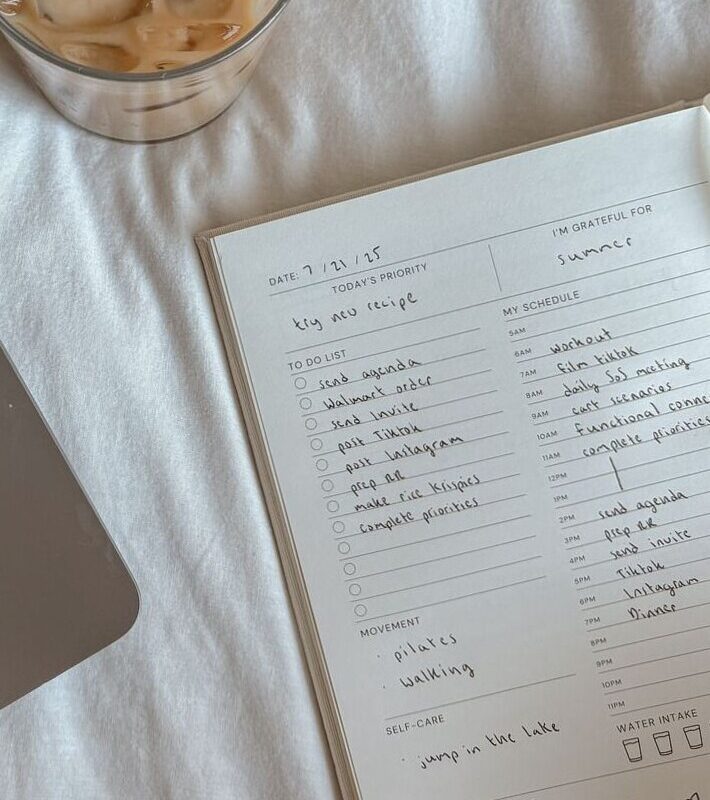 DATE: 7 / 21 / 25
TODAY'S PRIORITY
try new recipe
I'M GRATEFUL FOR
summer
TO DO LIST
send agenda
Walmart order
send Invite
post Tiktok
post Instagram
prep RR
make rice krispies
complete priorities
MOVEMENT
· pilates
· walking
SELF-CARE
· jump in the lake
MY SCHEDULE
5AM
6AM workout
7AM film tiktok
8AM daily SoS meeting
9AM cart scenarios
10AM Functional conne
11AM complete priorities
12PM
1PM
2PM send agenda
3PM prep RR
4PM send invite
5PM Tiktok
6PM Instagram
7PM Dinner
8PM
9PM
10PM
11PM
WATER INTAKE